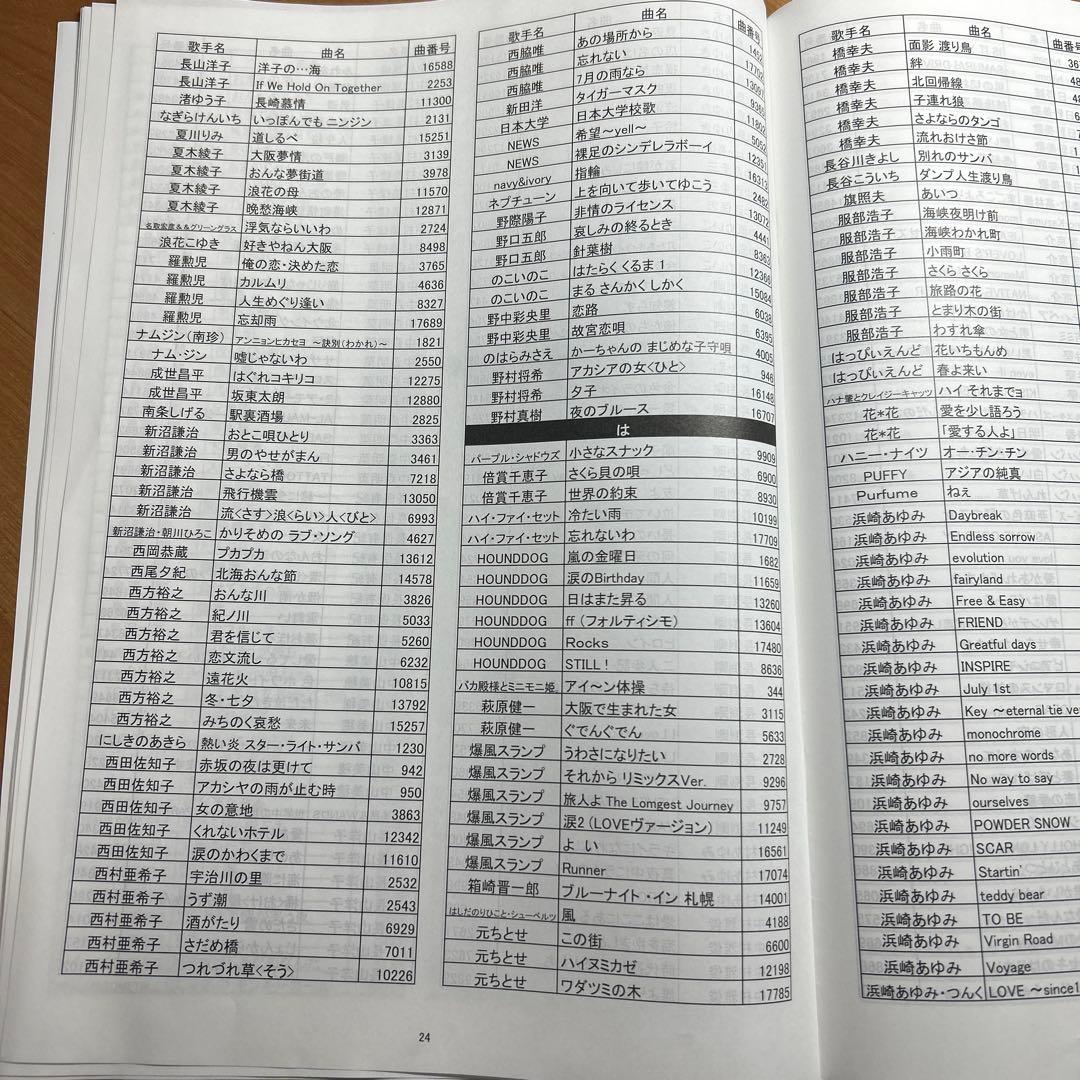 歌手名 曲名 曲番号
長山洋子 洋子の…海 16588
長山洋子 If We Hold On Together 2253
渚ゆう子 長崎慕情 11300
なぎらけんいち いっぽんでも ニンジン 2131
夏川りみ 道しるべ 15251
夏木綾子 大阪夢情 3139
夏木綾子 おんな夢街道 3978
夏木綾子 浪花の母 11570
夏木綾子 晩愁海峡 12871
名取宏彦&&グリーングラス 浮気ならいいわ 2724
浪花こゆき 好きやねん大阪 8498
羅勲児 俺の恋・決めた恋 3765
羅勲児 カルムリ 4636
羅勲児 人生めぐり逢い 8327
羅勲児 忘却雨 17689
ナムジン(南珍) アンニョンヒカセヨ ～訣別(わかれ)～ 1821
ナム・ジン 嘘じゃないわ 2550
成世昌平 はぐれコキリコ 12275
成世昌平 坂東太朗 12880
南条しげる 駅裏酒場 2825
新沼謙治 おとこ唄ひとり 3363
新沼謙治 男のやせがまん 3461
新沼謙治 さよなら橋 7218
新沼謙治 飛行機雲 13050
新沼謙治 流<さす>浪<らい>人<びと> 6993
新沼謙治・朝川ひろこ かりそめの ラブ・ソング 4627
西岡恭蔵 プカプカ 13612
西尾夕紀 北海おんな節 14578
西方裕之 おんな川 3826
西方裕之 紀ノ川 5033
西方裕之 君を信じて 5260
西方裕之 恋文流し 6232
西方裕之 遠花火 10815
西方裕之 冬・七夕 13792
西方裕之 みちのく哀愁 15257
にしきのあきら 熱い炎 スター・ライト・サンバ 1230
西田佐知子 赤坂の夜は更けて 942
西田佐知子 アカシヤの雨が止む時 950
西田佐知子 女の意地 3863
西田佐知子 くれないホテル 12342
西田佐知子 涙のかわくまで 11610
西村亜希子 宇治川の里 2532
西村亜希子 うず潮 2543
西村亜希子 酒がたり 6929
西村亜希子 さだめ橋 7011
西村亜希子 つれづれ草<そう> 10226
歌手名 曲名 曲番号
西脇唯 あの場所から
西脇唯 忘れない 17702
西脇唯 7月の雨なら
新田洋 タイガーマスク
日本大学 日本大学校歌 11802
NEWS 希望～yell～ 5052
NEWS 裸足のシンデレラボーイ 12351
navy&ivory 指輪 16313
ネプチューン 上を向いて歩いてゆこう 2482
野際陽子 非情のライセンス 13072
野口五郎 哀しみの終るとき 4441
野口五郎 針葉樹 8362
のこいのこ はたらく くるま 1 12366
のこいのこ まる さんかく しかく 15084
野中彩央里 恋路 6038
野中彩央里 故宮恋唄 6395
のはらみさえ かーちゃんの まじめな子守唄 4005
野村将希 アカシアの女<ひと> 946
野村将希 夕子 16148
野村真樹 夜のブルース 16707
は
パープル・シャドウズ 小さなスナック 9909
倍賞千恵子 さくら貝の唄 6900
倍賞千恵子 世界の約束 8930
ハイ・ファイ・セット 冷たい雨 10199
ハイ・ファイ・セット 忘れないわ 17709
HOUNDDOG 嵐の金曜日 1682
HOUNDDOG 涙のBirthday 11659
HOUNDDOG 日はまた昇る 13260
HOUNDDOG ff (フォルティシモ) 13604
HOUNDDOG Rocks 17480
HOUNDDOG STILL! 8636
バカ殿様とミニモニ姫。 アイ～ン体操 344
萩原健一 大阪で生まれた女 3115
萩原健一 ぐでんぐでん 5633
爆風スランプ うわさになりたい 2728
爆風スランプ それから リミックスVer. 9296
爆風スランプ 旅人よ The Lomgest Journey 9757
爆風スランプ 涙2 (LOVEヴァージョン) 11249
爆風スランプ よ い 16561
爆風スランプ Runner 17074
箱崎晋一郎 ブルーナイト・イン 札幌 14001
はしだのりひこと・シューベルツ 風 4188
元ちとせ この街 6600
元ちとせ ハイヌミカゼ 12198
元ちとせ ワダツミの木 17785
24
歌手名 曲名 曲番号
橋幸夫 面影 渡り鳥
橋幸夫 絆
橋幸夫 北回帰線
橋幸夫 子連れ狼
橋幸夫 さよならのタンゴ
橋幸夫 流れおけさ節
長谷川きよし 別れのサンバ
長谷こういち ダンプ人生渡り鳥
旗照夫 あいつ
服部浩子 海峡夜明け前
服部浩子 海峡わかれ町
服部浩子 小雨町
服部浩子 さくら さくら
服部浩子 旅路の花
服部浩子 とまり木の街
服部浩子 わすれ傘
はっぴいえんど 花いちもんめ
はっぴいえんど 春よ来い
ハナ肇とクレイジーキャッツ ハイ それまでョ
花*花 愛を少し語ろう
花*花 「愛する人よ」
ハニー・ナイツ オー・チン・チン
PUFFY アジアの純真
Purfume ねぇ
浜崎あゆみ Daybreak
浜崎あゆみ Endless sorrow
浜崎あゆみ evolution
浜崎あゆみ fairyland
浜崎あゆみ Free & Easy
浜崎あゆみ FRIEND
浜崎あゆみ Greatful days
浜崎あゆみ INSPIRE
浜崎あゆみ July 1st
浜崎あゆみ Key ～eternal tie ve
浜崎あゆみ monochrome
浜崎あゆみ no more words
浜崎あゆみ No way to say
浜崎あゆみ ourselves
浜崎あゆみ POWDER SNOW
浜崎あゆみ SCAR
浜崎あゆみ Startin'
浜崎あゆみ teddy bear
浜崎あゆみ TO BE
浜崎あゆみ Virgin Road
浜崎あゆみ Voyage
浜崎あゆみ・つんく LOVE ～since1